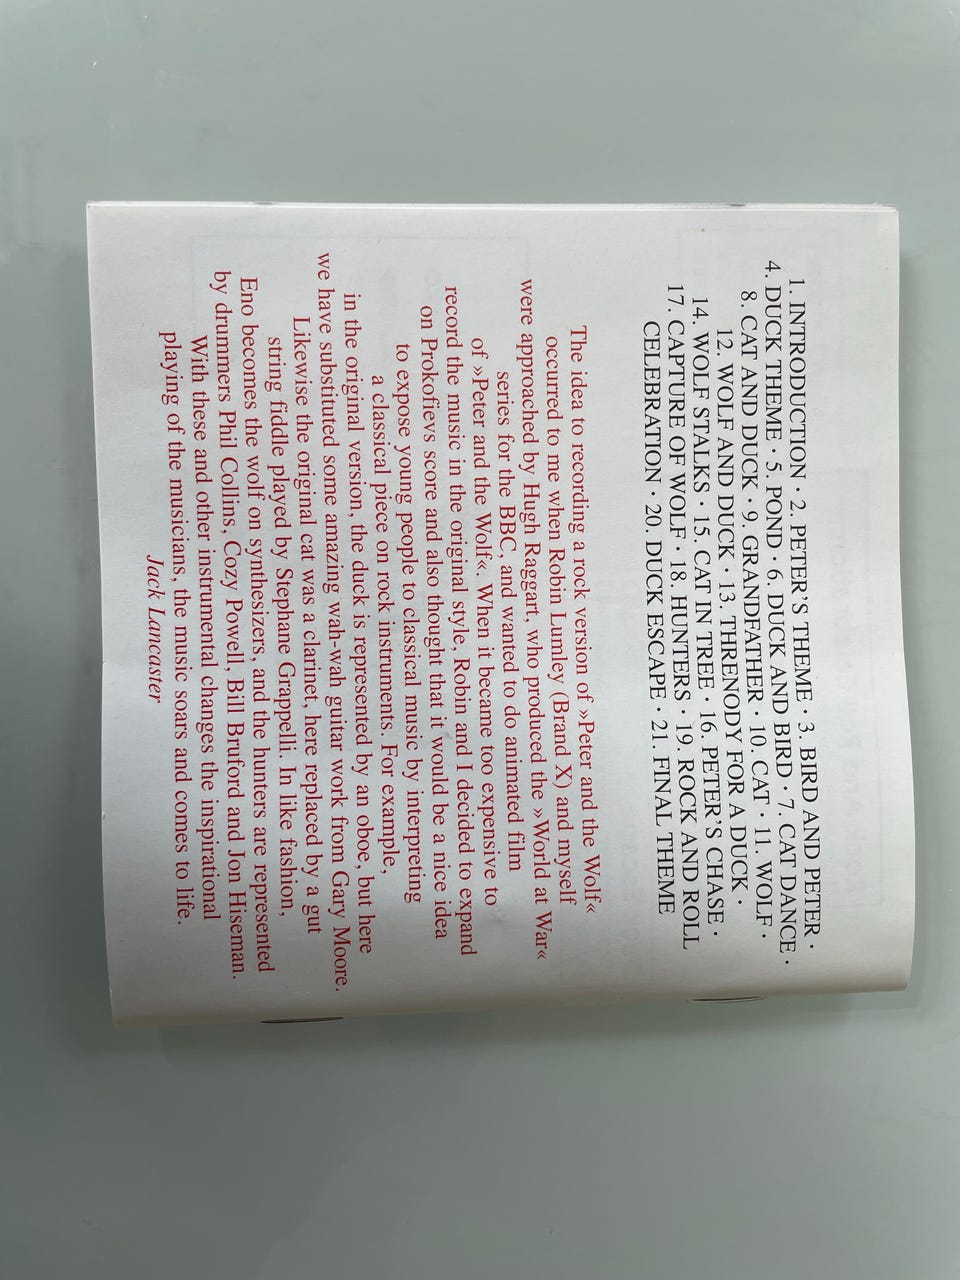 1. INTRODUCTION · 2. PETER'S THEME · 3. BIRD AND PETER ·
4. DUCK THEME · 5. POND · 6. DUCK AND BIRD · 7. CAT DANCE ·
8. CAT AND DUCK · 9. GRANDFATHER · 10. CAT · 11. WOLF ·
12. WOLF AND DUCK · 13. THRENODY FOR A DUCK ·
14. WOLF STALKS · 15. CAT IN TREE · 16. PETER'S CHASE ·
17. CAPTURE OF WOLF · 18. HUNTERS · 19. ROCK AND ROLL
CELEBRATION · 20. DUCK ESCAPE · 21. FINAL THEME
The idea to recording a rock version of »Peter and the Wolf«
occurred to me when Robin Lumley (Brand X) and myself
were approached by Hugh Raggart, who produced the »World at War«
series for the BBC, and wanted to do animated film
of »Peter and the Wolf«. When it became too expensive to
record the music in the original style, Robin and I decided to expand
on Prokofievs score and also thought that it would be a nice idea
to expose young people to classical music by interpreting
a classical piece on rock instruments. For example,
in the original version, the duck is represented by an oboe, but here
we have substituted some amazing wah-wah guitar work from Gary Moore.
Likewise the original cat was a clarinet, here replaced by a gut
string fiddle played by Stephane Grappelli. In like fashion,
Eno becomes the wolf on synthesizers, and the hunters are represented
by drummers Phil Collins, Cozy Powell, Bill Bruford and Jon Hiseman.
With these and other instrumental changes the inspirational
playing of the musicians, the music soars and comes to life.
Jack Lancaster